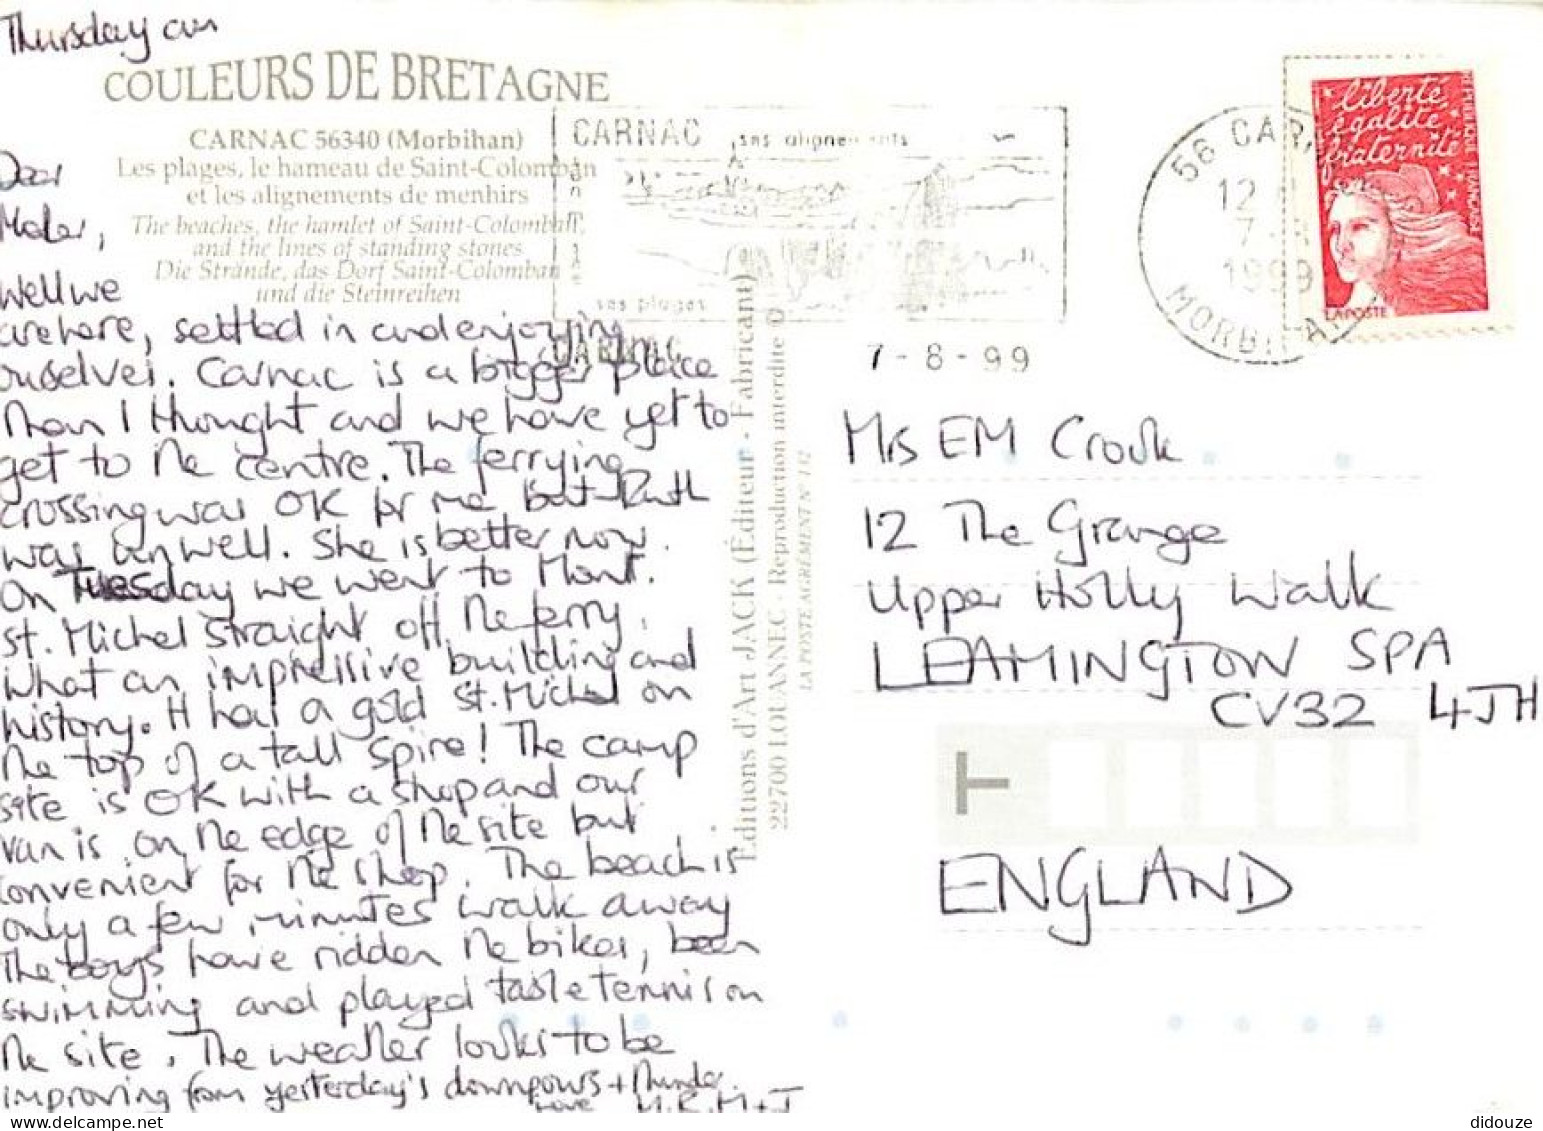 Thursday am
COULEURS DE BRETAGNE
CARNAC 56340 (Morbihan)
Les plages, le hameau de Saint-Colomban
et les alignements de menhirs
The beaches, the hamlet of Saint-Colomban,
and the lines of standing stones
Die Strände, das Dorf Saint-Colomban
und die Steinreihen
Dear
Mother,
Well we
are here, settled in and enjoying
ourselves. Carnac is a bigger place
than I thought and we have yet to
get to the centre. The ferrying
crossing was OK for me but Ruth
was unwell. She is better now.
On Tuesday we went to Mont.
St. Michel straight off the ferry.
What an impressive building and
history. It has a gold St. Michel on
the top of a tall spire! The camp
site is OK with a shop and our
van is on the edge of the site but
convenient for the shop. The beach is
only a few minutes walk away
The boys have ridden the bikes, been
swimming and played table tennis on
the site. The weather looks to be
improving from yesterday's downpours + thunder.
Love M. R. M + J
Editions d'Art JACK (Éditeur - Fabricant)
22700 LOUANNEC - Reproduction interdite ©
LA POSTE AGRÉMENT N° 142
CARNAC ses alignements
ses plages
CARNAC
7-8-99
56 CAR
12
7
1999
MORBIHAN
liberté
égalité
fraternité
REPUBLIQUE FRANÇAISE
LA POSTE
Mrs EM Crook
12 The Grange
Upper Holly Walk
LEAMINGTON SPA
CV32 4JH
T
ENGLAND
delcampe.net
didouze